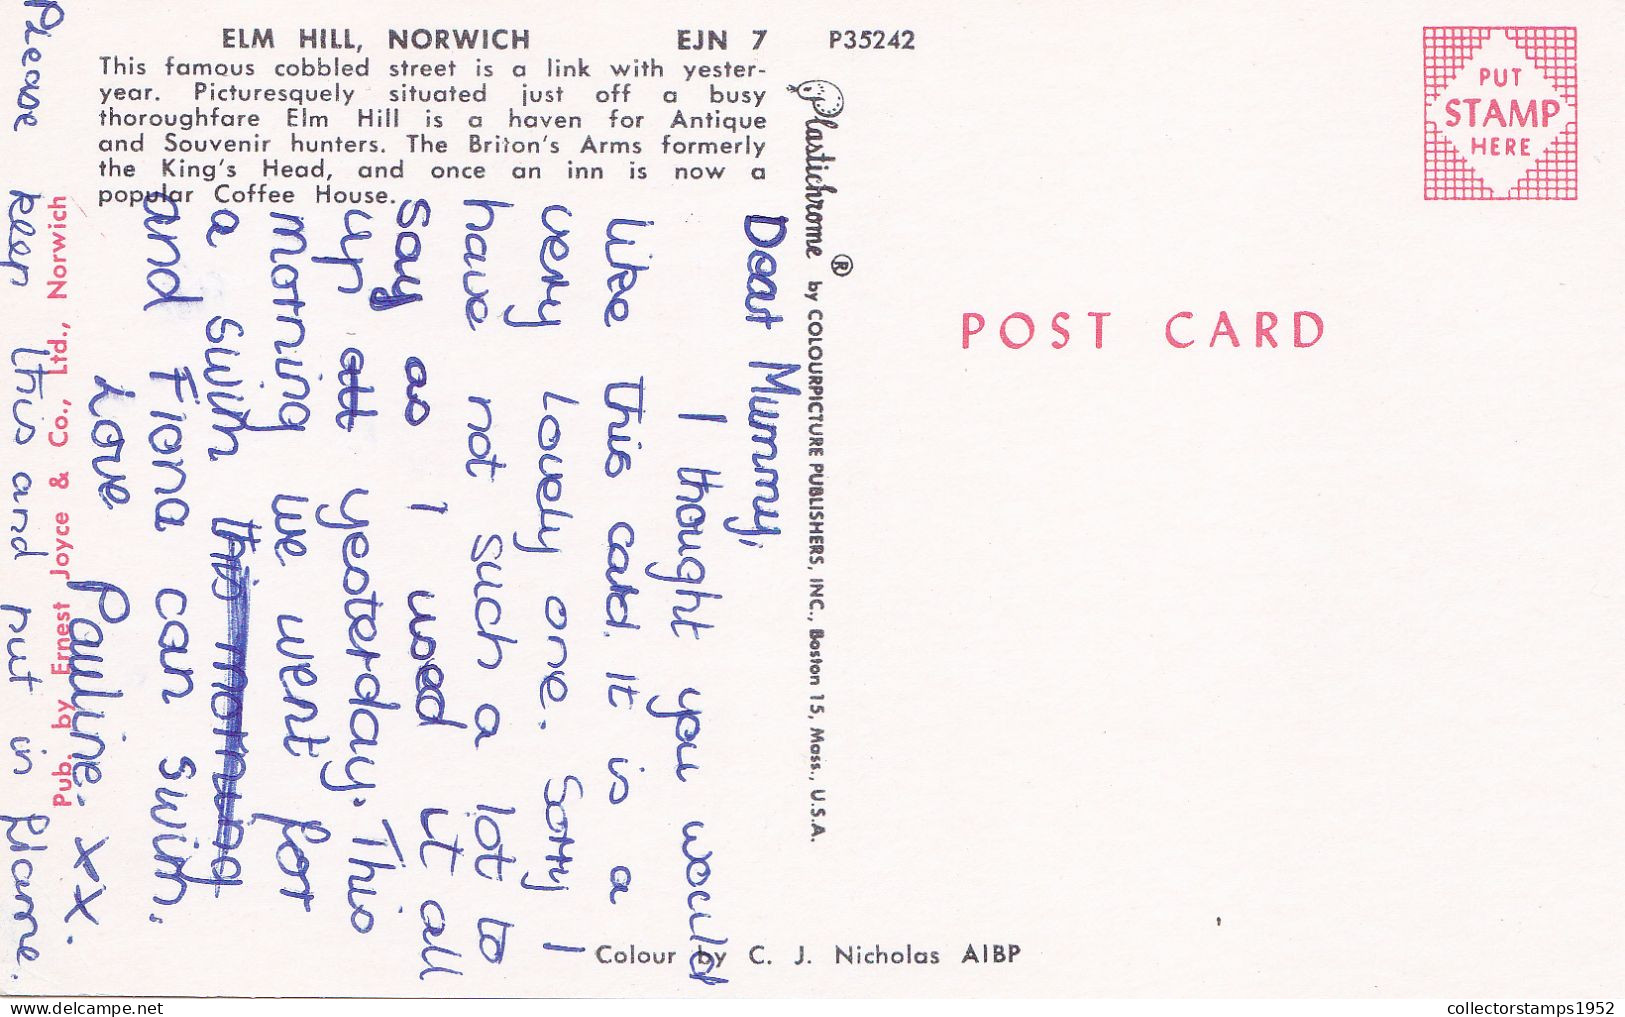 ELM HILL, NORWICH EJN 7 P35242
This famous cobbled street is a link with yester-
year. Picturesquely situated just off a busy
thoroughfare Elm Hill is a haven for Antique
and Souvenir hunters. The Briton's Arms formerly
the King's Head, and once an inn is now a
popular Coffee House.
Plastichrome ® by COLOURPICTURE PUBLISHERS, INC., Boston 15, Mass., U.S.A.
PUT
STAMP
HERE
POST CARD
Dear Mummy,
I thought you would
like this card. It is a
very lovely one. Sorry I
have not such a lot to
say as I used it all
up att yesterday. This
morning we went for
a swim this morning
and Fiona can swim.
Love
Pauline. XX.
Pub. by Ernest Joyce & Co., Ltd., Norwich
Please keep this and put in frame.
Colour by C. J. Nicholas AIBP
www.delcampe.net
collectorstamps1952